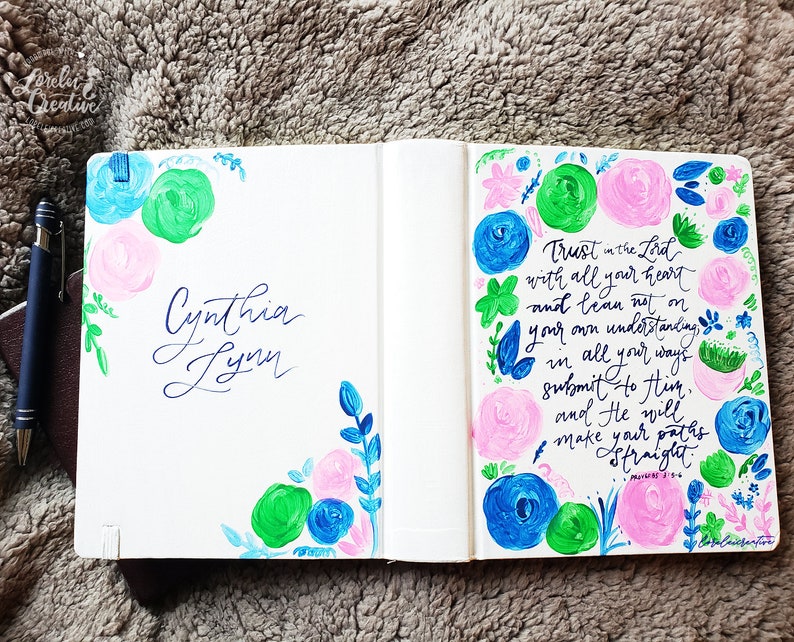 Lorelei
Creative
LORELEICREATIVE.COM
Cynthia
Lynn
Trust in the Lord
with all your heart
and lean not on
your own understanding;
in all your ways
submit to Him,
and He will
make your paths
straight.
PROVERBS 3:5-6
loreleicreative